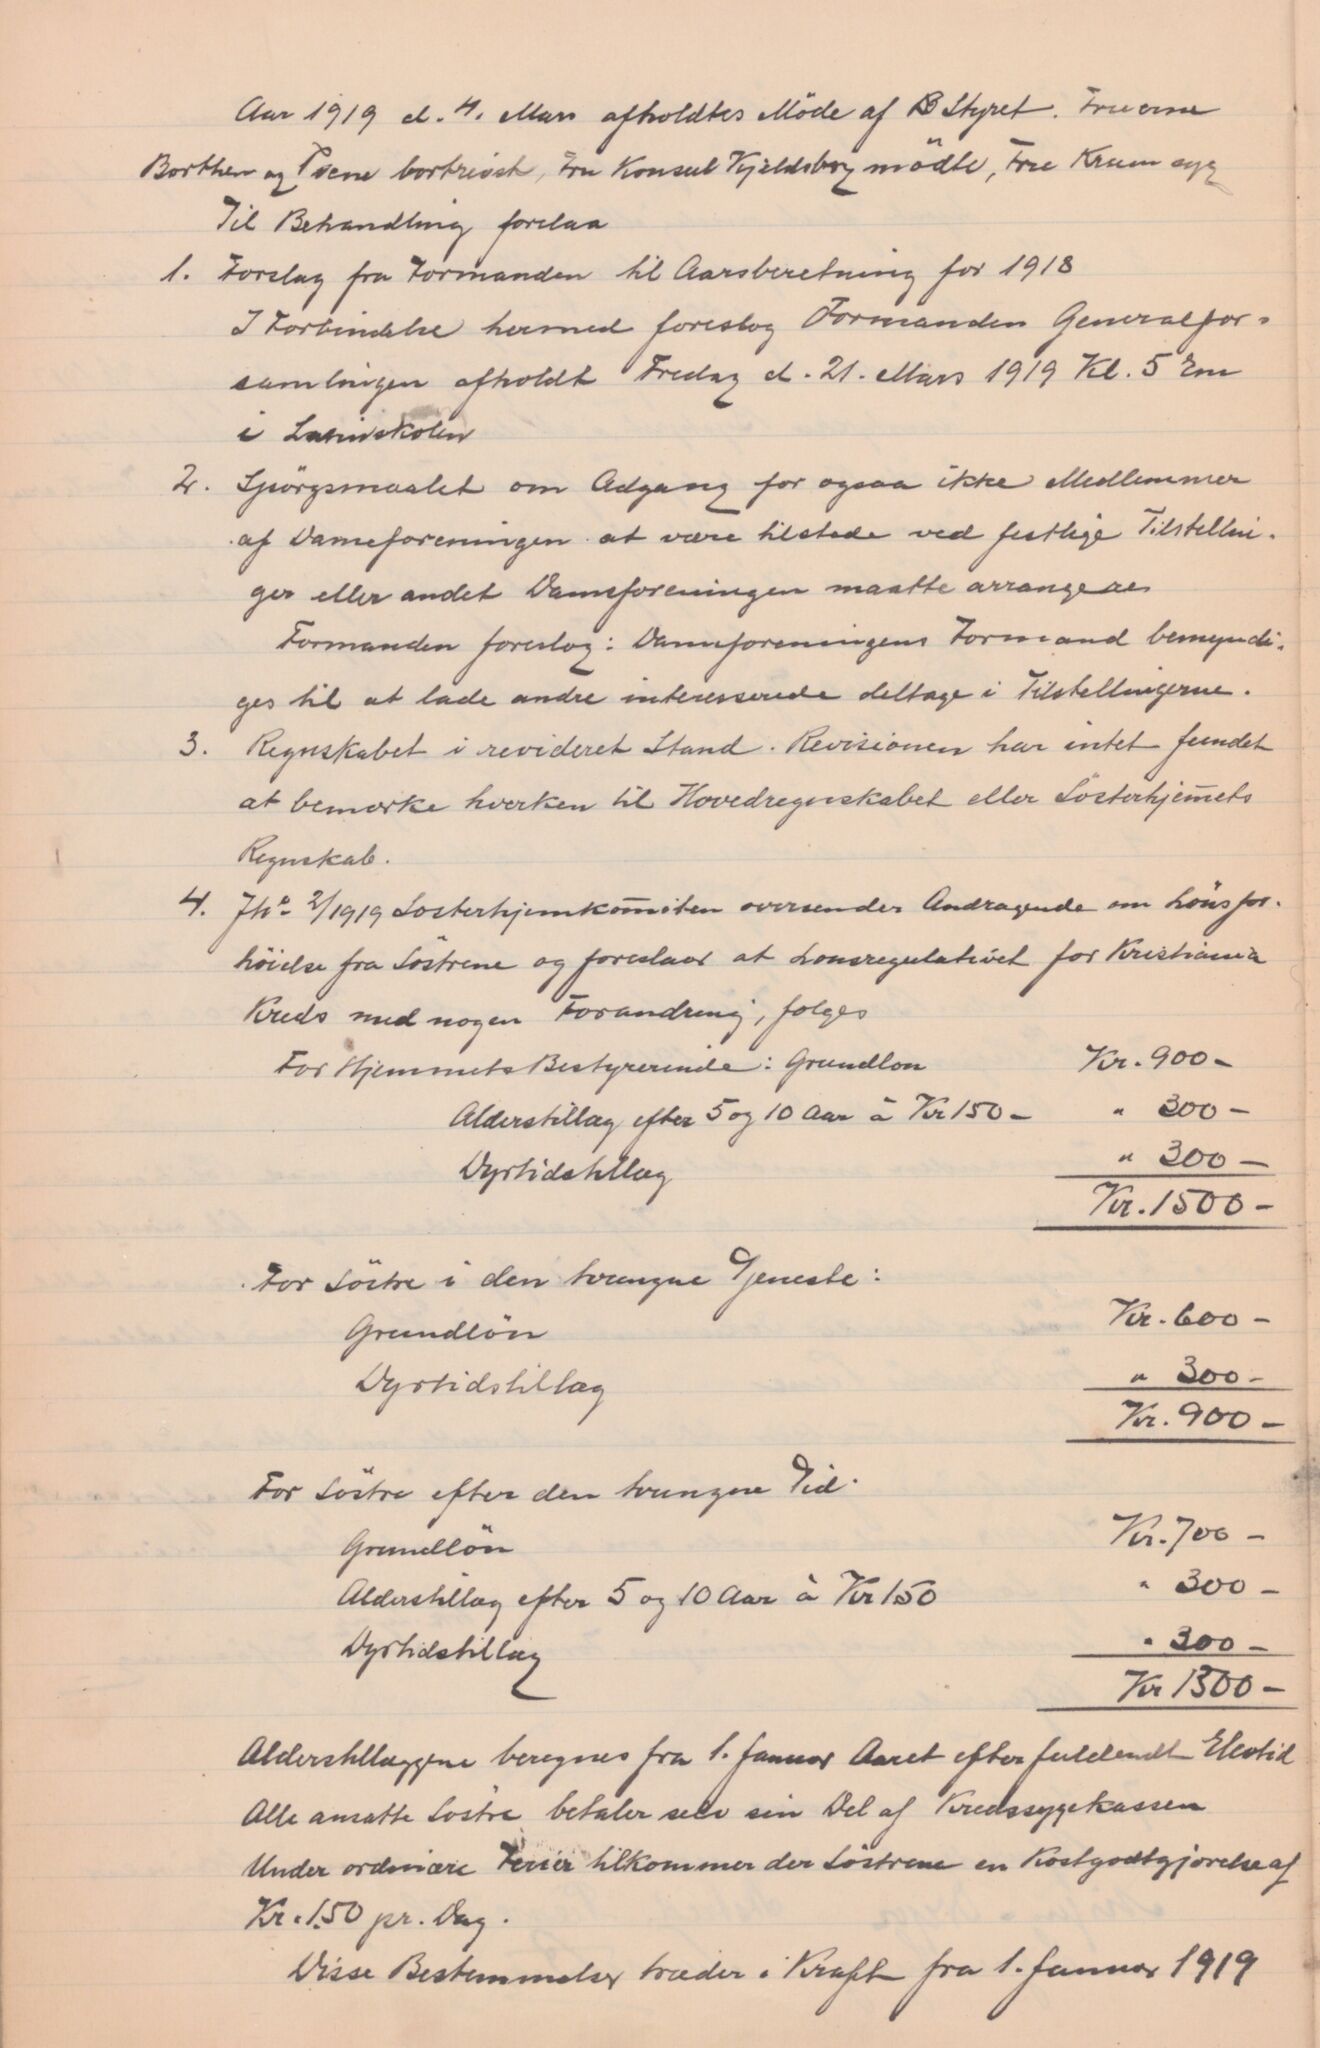 Aar 1919 d. 4. Mars afholdtes Möde af Styret. Fruerne
Borthen og Tvene bortreist, Fru Konsul Kjeldsberg mödte, Frue Krum syg
Til Behandling forelaa
1. Forslag fra Formanden til Aarsberetning for 1918
I Forbindelse hermed foreslog Formanden Generalfor-
samlingen afholdt Fredag d. 21. Mars 1919 Kl. 5 Em
i Latinskolen
2. Spörgsmaalet om Adgang for ogsaa ikke Medlemmer
af Dameforeningen at være tilstede ved festlige Tilstellin-
ger eller andet Dameforeningen maatte arrangere
Formanden foreslog: Dameforeningens Formand bemyndi-
ges til at lade andre interesserede deltage i Tilstellingerne.
3. Regnskabet i revideret Stand. Revisionen har intet fundet
at bemerke hverken til Hovedregnskabet eller Sösterhjem̄ets
Regnskab.
4. 2/1919 Sösterhjemkom̄iteen oversender Andragende om Lönsfor-
höielse fra Söstrene og foreslaar at Lonsregulativet for Kristiania
Kreds med nogen Forandring, folges
For Hjemmets Bestyrerinde: Grundlon Kr. 900 -
Alderstillæg efter 5 og 10 Aar à Kr 150 - " 300 -
Dyrtidstillæg " 300 -
Kr. 1500 -
For Söstre i den tvungne Tjeneste:
Grundlön Kr. 600 -
Dyrtidstillæg " 300 -
Kr. 900 -
For Söstre efter den tvungne Tid.
Grundlön Kr. 700 -
Alderstillæg efter 5 og 10 Aar à Kr 150 " 300 -
Dyrtidstillæg " 300 -
Kr 1300 -
Alderstillæggene beregnes fra 1. Januar Aaret efter fuldendt Elevtid
Alle ansatte Söstre betaler selv sin Del af Kredssygekassen
Under ordinære Ferier tilkommer der Söstrene en Kostgodtgjorelse af
Kr. 1.50 pr. Dag.
Disse Bestemmelser træder i Kraft fra 1. Januar 1919